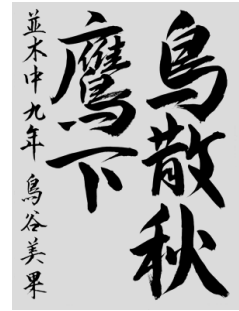 鳥散秋
鷹下
並木中九年 鳥谷美果